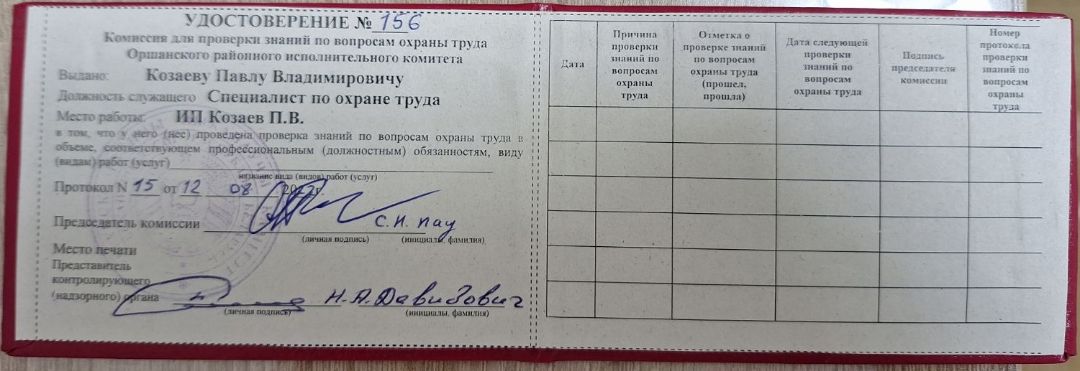 УДОСТОВЕРЕНИЕ № 156
Комиссия для проверки знаний по вопросам охраны труда
Оршанского районного исполнительного комитета
Выдано: Козаеву Павлу Владимировичу
Должность служащего Специалист по охране труда
Место работы: ИП Козаев П.В.
в том, что у него (нее) проведена проверка знаний по вопросам охраны труда в
объеме, соответствующем профессиональным (должностным) обязанностям, виду
(видам) работ (услуг)
название вида (видов) работ (услуг)
Протокол N 15 от 12 08 г.
Председатель комиссии С.Н. Пау
(личная подпись) (инициалы, фамилия)
Место печати
Представитель
контролирующего
(надзорного) органа Н.А. Давидович
(личная подпись) (инициалы, фамилия)
Дата
Причина
проверки
знаний по
вопросам
охраны
труда
Отметка о
проверке знаний
по вопросам
охраны труда
(прошел,
прошла)
Дата следующей
проверки
знаний по
вопросам
охраны труда
Подпись
председателя
комиссии
Номер
протокола
проверки
знаний по
вопросам
охраны
труда